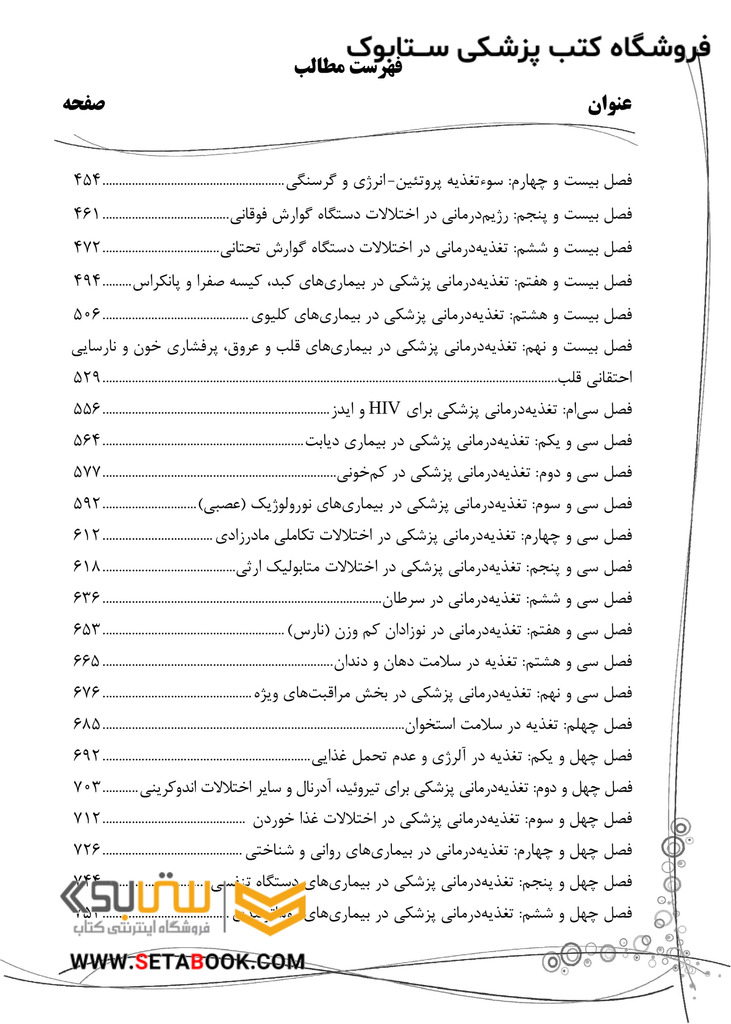 فروشگاه کتب پزشکی ستابوک
فهرست مطالب
عنوان صفحه
فصل بیست و چهارم: سوءتغذیه پروتئین-انرژی و گرسنگی ........................ ۴۵۴
فصل بیست و پنجم: رژیم‌درمانی در اختلالات دستگاه گوارش فوقانی ........................ ۴۶۱
فصل بیست و ششم: تغذیه‌درمانی در اختلالات دستگاه گوارش تحتانی ........................ ۴۷۲
فصل بیست و هفتم: تغذیه‌درمانی پزشکی در بیماری‌های کبد، کیسه صفرا و پانکراس ......... ۴۹۴
فصل بیست و هشتم: تغذیه‌درمانی پزشکی در بیماری‌های کلیوی ........................ ۵۰۶
فصل بیست و نهم: تغذیه‌درمانی پزشکی در بیماری‌های قلب و عروق، پرفشاری خون و نارسایی
احتقانی قلب ........................ ۵۲۹
فصل سی‌ام: تغذیه‌درمانی پزشکی برای HIV و ایدز ........................ ۵۵۶
فصل سی و یکم: تغذیه‌درمانی پزشکی در بیماری دیابت ........................ ۵۶۴
فصل سی و دوم: تغذیه‌درمانی پزشکی در کم‌خونی ........................ ۵۷۷
فصل سی و سوم: تغذیه‌درمانی پزشکی در بیماری‌های نورولوژیک (عصبی) ........................ ۵۹۲
فصل سی و چهارم: تغذیه‌درمانی پزشکی در اختلالات تکاملی مادرزادی ........................ ۶۱۲
فصل سی و پنجم: تغذیه‌درمانی پزشکی در اختلالات متابولیک ارثی ........................ ۶۱۸
فصل سی و ششم: تغذیه‌درمانی در سرطان ........................ ۶۳۶
فصل سی و هفتم: تغذیه‌درمانی در نوزادان کم وزن (نارس) ........................ ۶۵۳
فصل سی و هشتم: تغذیه در سلامت دهان و دندان ........................ ۶۶۵
فصل سی و نهم: تغذیه‌درمانی پزشکی در بخش مراقبت‌های ویژه ........................ ۶۷۶
فصل چهلم: تغذیه در سلامت استخوان ........................ ۶۸۵
فصل چهل و یکم: تغذیه در آلرژی و عدم تحمل غذایی ........................ ۶۹۲
فصل چهل و دوم: تغذیه‌درمانی پزشکی برای تیروئید، آدرنال و سایر اختلالات اندوکرینی ........... ۷۰۳
فصل چهل و سوم: تغذیه‌درمانی پزشکی در اختلالات غذا خوردن ........................ ۷۱۲
فصل چهل و چهارم: تغذیه‌درمانی در بیماری‌های روانی و شناختی ........................ ۷۲۶
فصل چهل و پنجم: تغذیه‌درمانی پزشکی در بیماری‌های دستگاه تنفسی ........................ ۷۴۴
فصل چهل و ششم: تغذیه‌درمانی پزشکی در بیماری‌های
ستابوک
فروشگاه اینترنتی کتاب
WWW.SETABOOK.COM